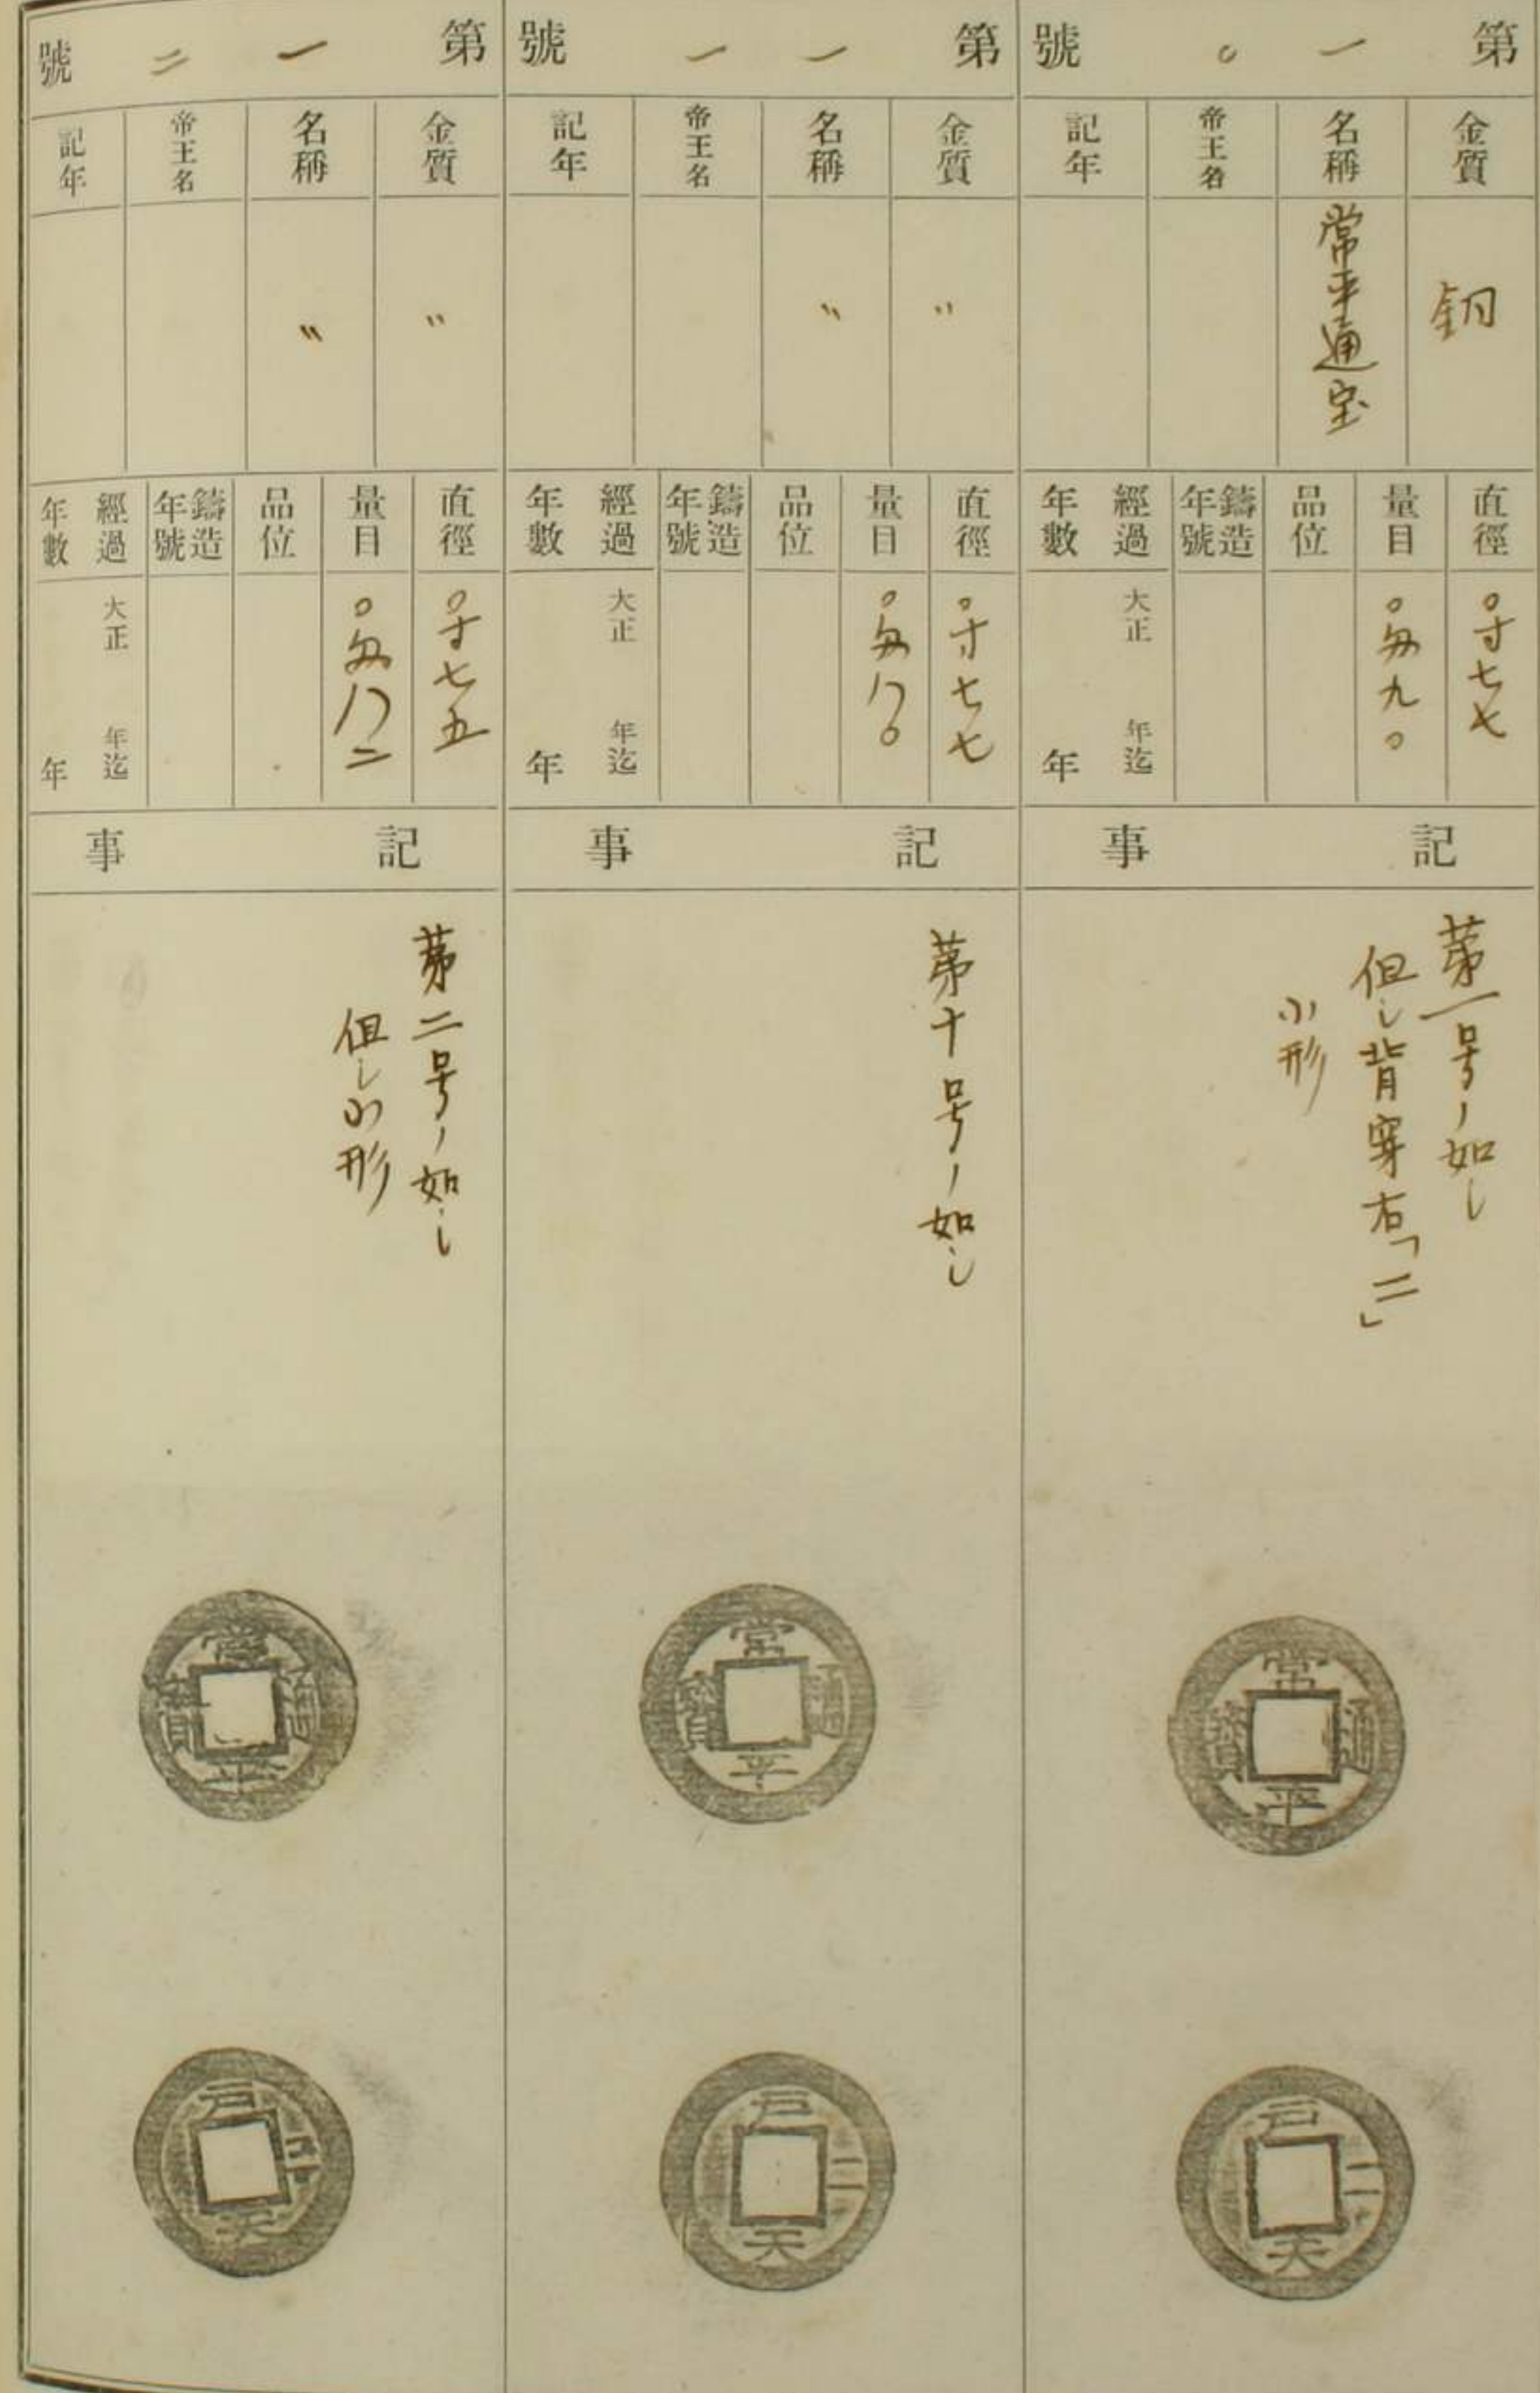 第一〇號
金質
名稱
帝王名
記年
銅
常平通宝
直徑
量目
品位
鑄造年號
經過年數
〇寸七七
〇匁九〇
大正 年迄
年
記事
第一号ノ如し
但し背穿右「二」
小形
常平通寶
戸二天
第一一號
金質
名稱
帝王名
記年
〃
〃
直徑
量目
品位
鑄造年號
經過年數
〇寸七七
〇匁八〇
大正 年迄
年
記事
第十号ノ如し
常平通寶
戸二天
第一二號
金質
名稱
帝王名
記年
〃
〃
直徑
量目
品位
鑄造年號
經過年數
〇寸七五
〇匁八二
大正 年迄
年
記事
第二号ノ如し
但し小形
常平通寶
戸
天